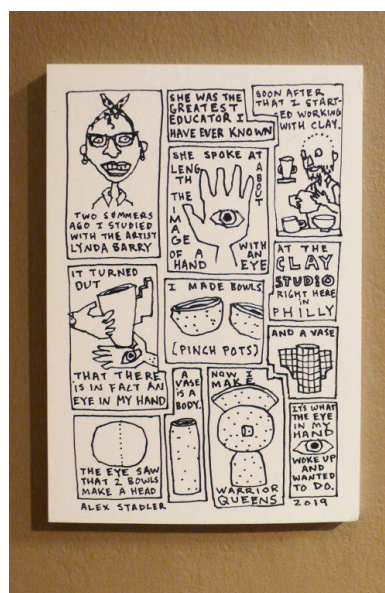 TWO SUMMERS
AGO I STUDIED
WITH THE ARTIST
LYNDA BARRY
SHE WAS THE
GREATEST
EDUCATOR I
HAVE EVER KNOWN
SHE SPOKE AT
LENG
TH
ABOUT
THE
IMAGE
OF A
HAND
WITH
AN
EYE
SOON AFTER
THAT I START-
ED WORKING
WITH CLAY.
AT THE
CLAY
STUDIO
RIGHT HERE
IN
PHILLY
IT TURNED
OUT
THAT THERE
IS IN FACT AN
EYE IN MY HAND
I MADE BOWLS
(PINCH POTS)
AND A VASE
THE EYE SAW
THAT 2 BOWLS
MAKE A HEAD
A
VASE
IS A
BODY.
NOW I
MAKE
WARRIOR
QUEENS
IT'S WHAT
THE EYE
IN MY
HAND
WOKE UP
AND
WANTED
TO DO.
ALEX STADLER
2019